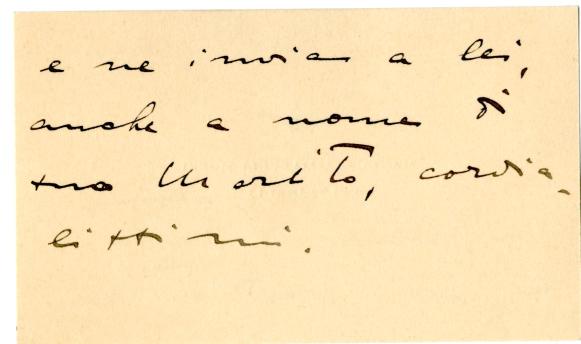 e ne invia a lei,
anche a nome di
suo Marito, cordia-
lissimi.